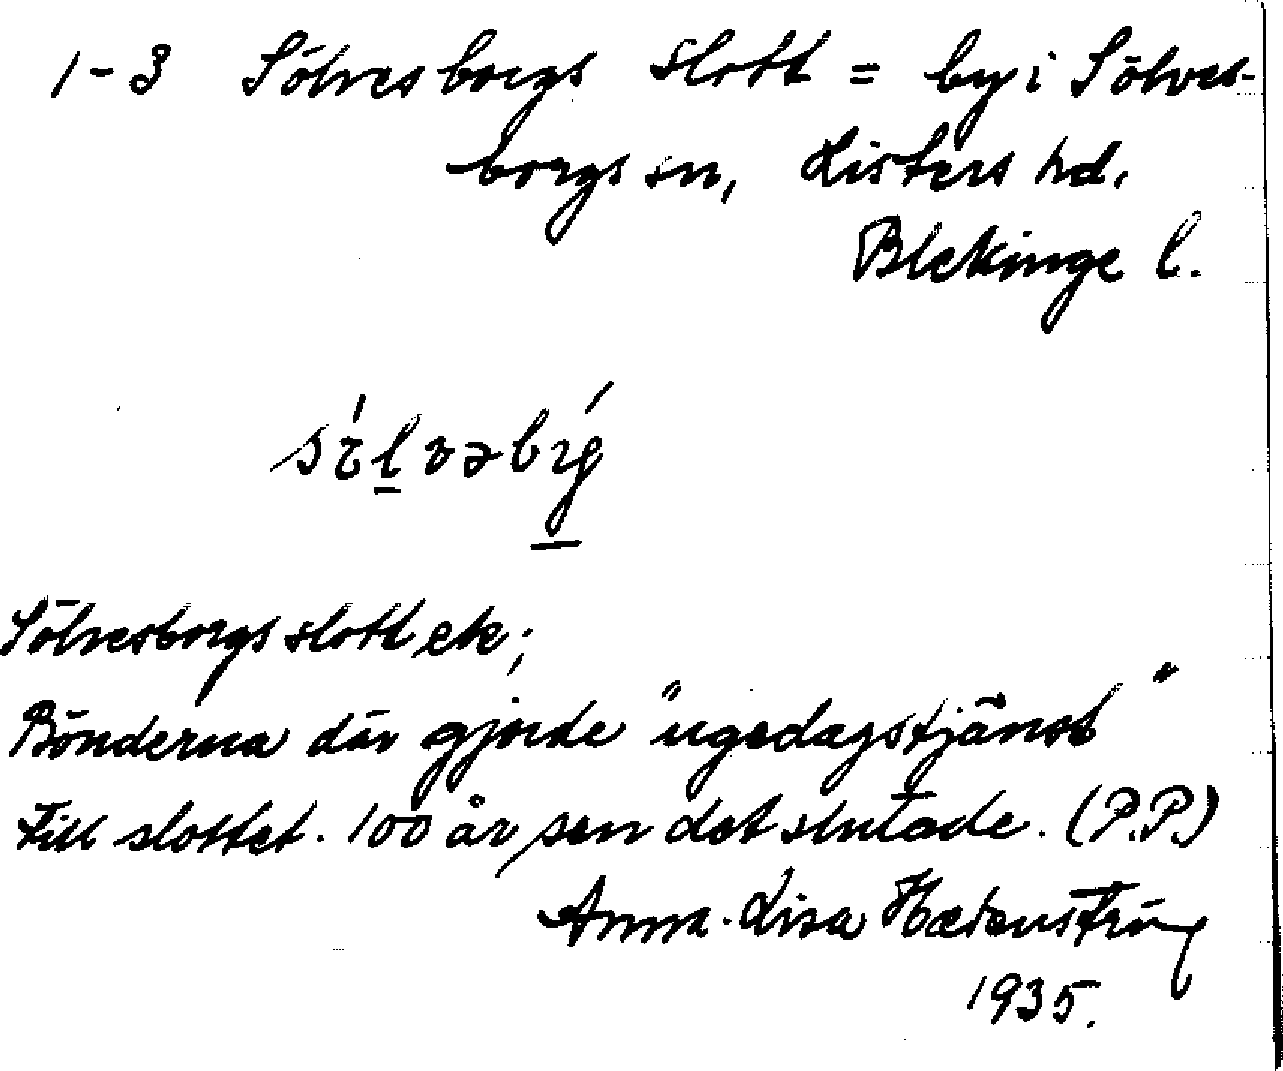 1-3 Sölvesborgs slott = by i Sölves-
borgs sn, Listers hd,
Blekinge l.
Sölvesborgs slott ek;
Bönderna där gjorde "ugedagstjänst"
till slottet. 100 år sen det slutade. (P.P.)
Anna-Lisa
1935.